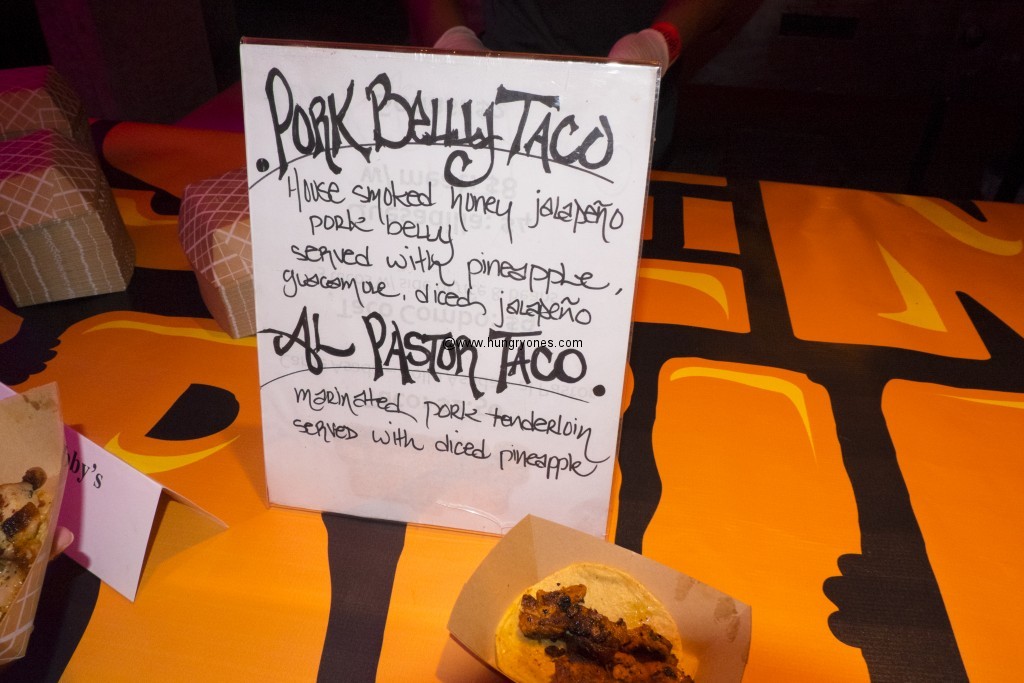 Pork Belly Taco
House smoked honey jalapeño
pork belly
served with pineapple,
guacamole, diced jalapeño
Al Pastor Taco
©www.hungryones.com
marinatted pork tenderloin
served with diced pineapple
by's